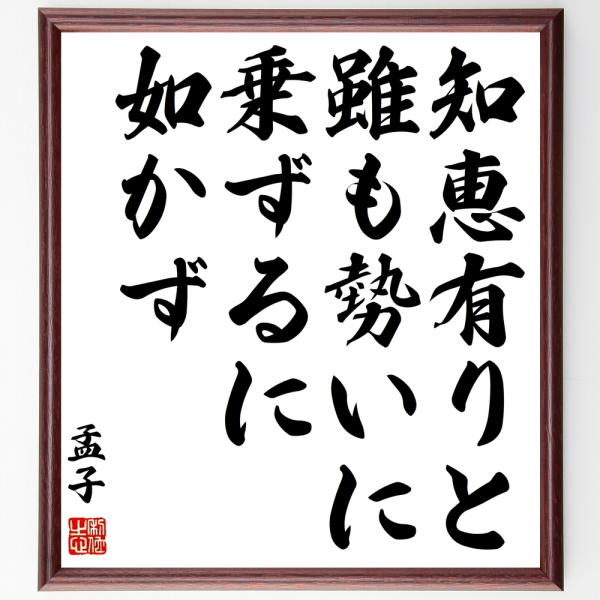 知恵有りと
雖も勢いに
乗ずるに
如かず
孟子